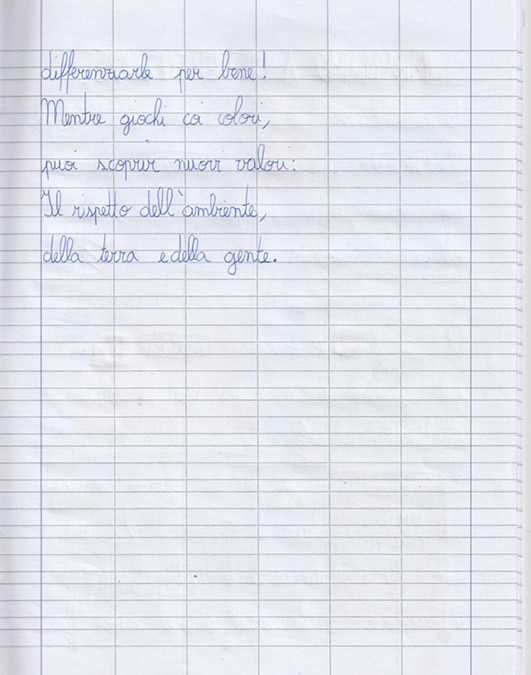 differenziarle per bene!
Mentre giochi coi colori,
puoi scoprir nuovi valori:
Il rispetto dell'ambiente,
della terra e della gente.